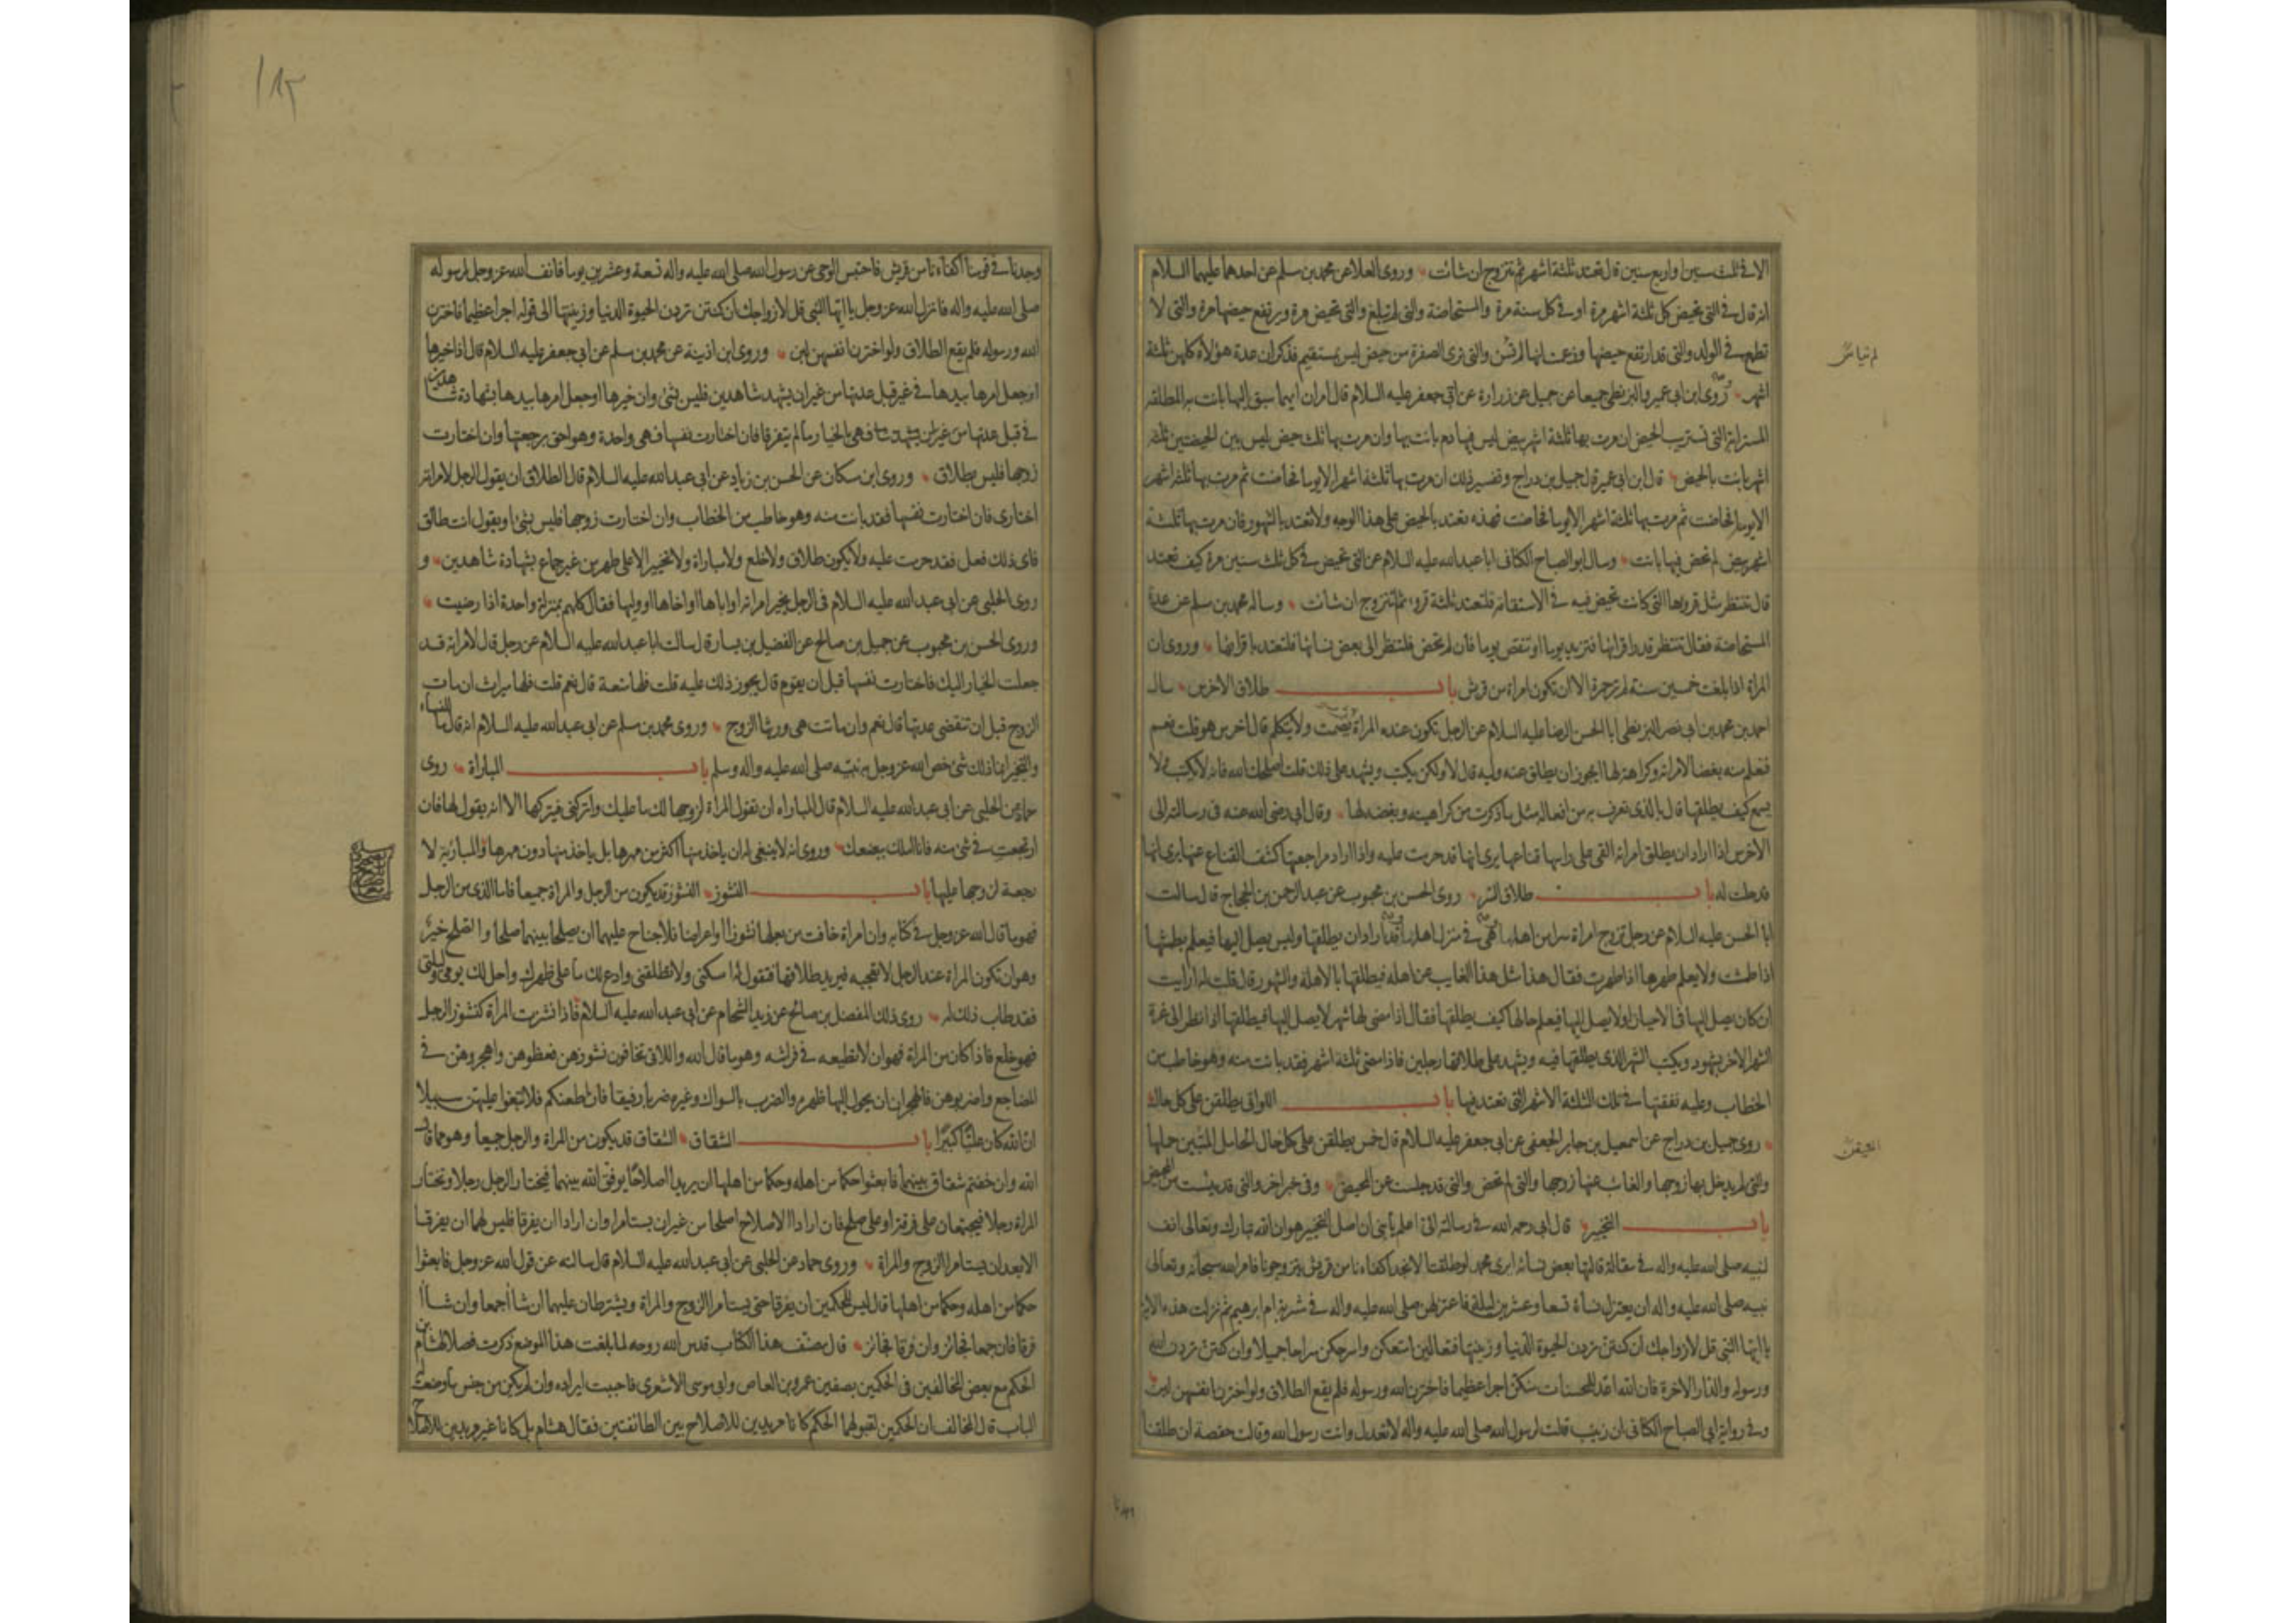 الا فى ثلث سنين او اربع سنين قال تعتد ثلثة اشهر ثم تتزوج ان شائت وروى العلا عن محمد بن مسلم عن احدهما عليهما السلام
انه قال فى التى تحيض كل ثلثة اشهر مرة او فى كل سنة مرة والمستحاضة والتى لم تبلغ والتى تحيض مرة ويرتفع حيضها مرة والتى لا
تطمع فى الولد والتى قد ارتفع حيضها وزعمت انها لم تيئس والتى ترى الصفرة من حيض ليس بمستقيم فذكر ان عدة هؤلاء كلهن ثلثة
اشهر وروى ابن ابى عمير والبزنطى جميعا عن جميل عن زرارة عن ابى جعفر عليه السلام قال امران ايهما سبق اليها بانت به المطلقة
المسترابة التى تستريب الحيض ان مرت بها ثلثة اشهر بيض ليس فيها دم بانت بها وان مرت بها ثلث حيض ليس بين الحيضتين ثلثة
اشهر بانت بالحيض قال ابن ابى عمير قال جميل بن دراج وتفسير ذلك ان مرت بها ثلثة اشهر الا يوما فحاضت ثم مرت بها ثلثة اشهر
الا يوما فحاضت ثم مرت بها ثلثة اشهر الا يوما فحاضت فهذه تعتد بالحيض على هذا الوجه ولا تعتد بالشهور فان مرت بها ثلثة
اشهر بيض لم تحض فيها بانت وسال ابو الصباح الكنانى ابا عبد الله عليه السلام عن التى تحيض فى كل ثلث سنين مرة كيف تعتد
قال تنتظر مثل قروءها التى كانت تحيض فيه فى الاستقامة فلتعتد ثلثة قروء ثم تتزوج ان شائت وساله محمد بن مسلم عن عدة
المستحاضة فقال تنتظر قدر اقرائها فتزيد يوما او تنقص يوما فان لم تحض فلتنظر الى بعض نسائها فلتعتد باقرائها وروى ان
المراة اذا بلغت خمسين سنة لم تر حمرة الا ان تكون امراة من قريش باب طلاق الاخرس سال
احمد بن محمد بن ابى نصر البزنطى ابا الحسن الرضا عليه السلام عن الرجل تكون عنده المراة يصمت ولا يتكلم قال اخرس هو قلت نعم
فنعلم منه بغضا لامراته وكراهته لها ايجوز ان يطلق عنه وليه قال لا ولكن يكتب ويشهد على ذلك قلت اصلحك الله فانه لا يكتب ولا
يسمع كيف يطلقها قال بالذى تعرف به من افعاله مثل ما ذكرت من كراهيته وبغضه لها وقال ابى رضى الله عنه فى رسالته الى
الاخرس اذا اراد ان يطلق امراته القى على راسها قناعها يرى انها قد حرمت عليه واذا اراد مراجعتها كشف القناع عنها يرى انها
قد حلت له باب طلاق السر روى الحسن بن محبوب عن عبد الرحمن بن الحجاج قال سالت
ابا الحسن عليه السلام عن رجل تزوج امراة سرا من اهلها وهى فى منزل اهلها وقد اراد ان يطلقها وليس يصل اليها فيعلم بطمثها
اذا طمثت ولا يعلم طهرها اذا طهرت فقال هذا مثل هذا الغايب عن اهله فيطلقها بالاهلة والشهور قال قلت له ارايت
ان كان يصل اليها فى الاحيان ولا يصل اليها فيعلم حالها كيف يطلقها فقال اذا مضى لها شهر لا يصل اليها فيطلقها اذا نظر الى غرة
الشهر الاخر بشهود ويكتب الشهر الذى يطلقها فيه ويشهد على طلاقها رجلين فاذا مضى ثلثة اشهر فقد بانت منه وهو خاطب من
الخطاب وعليه نفقتها فى تلك الثلثة الاشهر التى تعتد فيها باب اللواتى يطلقن على كل حال
روى جميل بن دراج عن اسمعيل بن جابر الجعفى عن ابى جعفر عليه السلام قال خمس يطلقن على كل حال الحامل المتبين حملها
والتى لم يدخل بها زوجها والغائب عنها زوجها والتى لم تحض والتى قد جلست عن المحيض وفى خبر اخر والتى قد يئست من المحيض
باب التخيير قال ابى رحمه الله فى رسالته الى اعلم يا بنى ان اصل التخيير هو ان الله تبارك وتعالى انف
لنبيه صلى الله عليه واله فى مقالة قالتها بعض نسائه ايرى محمد لو طلقنا الا نجد اكفاءنا من قريش يتزوجونا فامر الله سبحانه وتعالى
نبيه صلى الله عليه واله ان يعتزل نساءه تسعا وعشرين ليلة فاعتزلهن صلى الله عليه واله فى مشربة ام ابرهيم ثم نزلت هذه الاية
يا ايها النبى قل لازواجك ان كنتن تردن الحيوة الدنيا وزينتها فتعالين امتعكن واسرحكن سراحا جميلا وان كنتن تردن الله
ورسوله والدار الاخرة فان الله اعد للمحسنات منكن اجرا عظيما فاخترن الله ورسوله فلم يقع الطلاق ولو اخترن انفسهن لبن
وفى رواية ابى الصباح الكنانى ان زينب قالت لرسول الله صلى الله عليه واله لا تعدل وانت رسول الله وقالت حفصة ان طلقنا
١٨٣
وجدنا فى قومنا اكفاءنا من قريش فاحتبس الوحى عن رسول الله صلى الله عليه واله تسعة وعشرين يوما فانف الله عز وجل لرسوله
صلى الله عليه واله فانزل الله عز وجل يا ايها النبى قل لازواجك ان كنتن تردن الحيوة الدنيا وزينتها الى قوله اجرا عظيما فاخترن
الله ورسوله فلم يقع الطلاق ولو اخترن انفسهن لبن وروى ابن اذينة عن محمد بن مسلم عن ابى جعفر عليه السلام قال اذا خيرها
او جعل امرها بيدها فى غير قبل عدتها من غير ان يشهد شاهدين فليس بشئ وان خيرها او جعل امرها بيدها بشهادة شاهدين
فى قبل عدتها فهى بالخيار ما لم يتفرقا فان اختارت نفسها فهى واحدة وهو احق برجعتها وان اختارت
زوجها فليس بطلاق وروى ابن مسكان عن الحسن بن زياد عن ابى عبد الله عليه السلام قال الطلاق ان يقول الرجل لامراته
اختارى فان اختارت نفسها فقد بانت منه وهو خاطب من الخطاب وان اختارت زوجها فليس بشئ او يقول انت طالق
فاى ذلك فعل فقد حرمت عليه ولا يكون طلاق ولا خلع ولا مباراة ولا تخيير الا على طهر من غير جماع بشهادة شاهدين و
روى الحلبى عن ابى عبد الله عليه السلام فى الرجل يخير امراته او اباها او اخاها او وليها فقال كلهم بمنزلة واحدة اذا رضيت
وروى الحسن بن محبوب عن جميل بن صالح عن الفضيل بن يسار قال سالت ابا عبد الله عليه السلام عن رجل قال لامراته قد
جعلت الخيار اليك فاختارت نفسها قبل ان يقوم قال يجوز ذلك عليه قلت فلها متعة قال نعم قلت فلها ميراث ان مات
الزوج قبل ان تنقضى عدتها قال نعم وان ماتت هى ورثها الزوج وروى محمد بن مسلم عن ابى عبد الله عليه السلام انه قال ما للنساء
والتخيير انما ذلك شئ خص الله عز وجل به نبيه صلى الله عليه واله وسلم باب المباراة روى
حماد عن الحلبى عن ابى عبد الله عليه السلام قال المباراه ان تقول المراة لزوجها لك ما عليك واتركنى فيتركها الا انه يقول لها فان
ارتجعت فى شئ منه فانا املك ببضعك وروى انه لا ينبغى له ان ياخذ منها اكثر من مهرها بل ياخذ منها دون مهرها والمبارئة لا
رجعة لزوجها عليها باب النشوز النشوز قد يكون من الرجل والمراة جميعا فاما الذى من الرجل
فهو ما قال الله عز وجل فى كتابه وان امراة خافت من بعلها نشوزا او اعراضا فلا جناح عليهما ان يصلحا بينهما صلحا والصلح خير
وهو ان تكون المراة عند الرجل لا تعجبه فيريد طلاقها فتقول له امسكنى ولا تطلقنى وادع لك ما على ظهرك واحل لك يومى وليلتى
فقد طاب ذلك له روى ذلك المفضل بن صالح عن زيد الشحام عن ابى عبد الله عليه السلام فاذا نشزت المراة كنشوز الرجل
فهو خلع فاذا كان من المراة فهو ان لا تطيعه فى فراشه وهو ما قال الله واللاتى تخافون نشوزهن فعظوهن واهجروهن فى
المضاجع واضربوهن فالهجران ان يحول اليها ظهره والضرب بالسواك وغيره ضربا رفيقا فان اطعنكم فلا تبغوا عليهن سبيلا
ان الله كان عليا كبيرا باب الشقاق الشقاق قد يكون من المراة والرجل جميعا وهو مما قال
الله وان خفتم شقاق بينهما فابعثوا حكما من اهله وحكما من اهلها ان يريدا اصلاحا يوفق الله بينهما فيختار الرجل رجلا وتختار
المراة رجلا فيجتمعان على فرقة او على صلح فان ارادا الاصلاح اصلحا من غير ان يستامرا وان ارادا ان يفرقا فليس لهما ان يفرقا
الا بعد ان يستامرا الزوج والمراة وروى حماد عن الحلبى عن ابى عبد الله عليه السلام قال سالته عن قول الله عز وجل فابعثوا
حكما من اهله وحكما من اهلها قال ليس للحكمين ان يفرقا حتى يستامرا الزوج والمراة ويشترطان عليهما ان شاا جمعا وان شاا
فرقا فان جمعا فجائز وان فرقا فجائز قال مصنف هذا الكتاب قدس الله روحه لما بلغت هذا الموضع ذكرت فصلا لهشام بن
الحكم مع بعض المخالفين فى الحكمين بصفين عمرو بن العاص وابى موسى الاشعرى فاحببت ايراده وان لم يكن من جنس ما وضعت له
الباب قال المخالف ان الحكمين لقبولهما الحكم كانا مريدين للاصلاح بين الطائفتين فقال هشام بل كانا غير مريدين للاصلاح